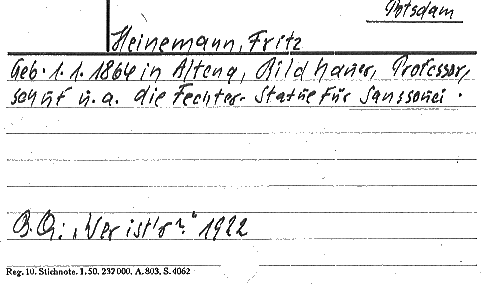 Potsdam
Heinemann, Fritz
Geb. 1. 1. 1864 in Altena, Bildhauer, Professor,
schuf u. a. die Fechter-Statue für Sanssouci.
B. Q.: „Wer ist's?" 1922
Reg. 10. Stichnote. 1. 50. 232000. A. 803. S. 4062